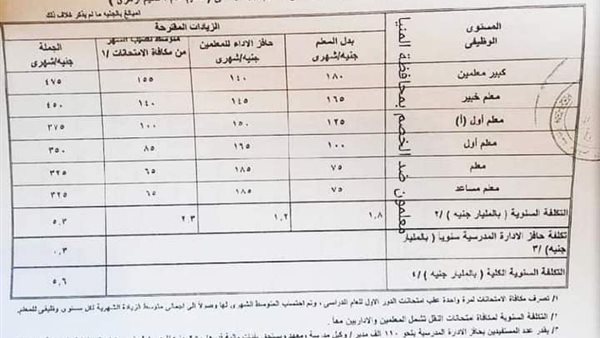 المبالغ بالجنيه ما لم يذكر خلاف ذلك
المستوى الوظيفى
الزيادات المقترحة
الجملة جنيه/شهرى
بدل المعلم جنيه/شهرى
حافز الاداء للمعلمين جنيه/شهرى
متوسط نصيب الشهر من مكافأة الامتحانات /١
كبير معلمين ١٨٠ ١٤٠ ١٥٥ ٤٧٥
معلم خبير ١٦٥ ١٤٥ ١٤٠ ٤٥٠
معلم أول (أ) ١٢٥ ١٥٠ ١٠٠ ٣٧٥
معلم أول ١٠٠ ١٦٥ ٨٥ ٣٥٠
معلم ٧٥ ١٨٥ ٦٥ ٣٢٥
معلم مساعد ٧٥ ١٨٥ ٦٥ ٣٢٥
التكلفة السنوية ( بالمليار جنيه ) /٢ ١.٨ ١.٢ ٢.٣ ٥.٣
تكلفة حافز الادارة المدرسية سنوياً ( بالمليار جنيه) /٣ ٠.٣
التكلفة السنوية الكلية ( بالمليار جنيه ) /٤ ٥.٦
معلمون ضد الخصم بمحافظة المنيا
/١ تصرف مكافأة الامتحانات لمرة واحدة عقب امتحانات الدور الاول للعام الدراسى ، وتم احتساب المتوسط الشهرى لها وصولاً الى اجمالى متوسط الزيادة الشهرية لكل مستوى وظيفى للمعلم.
/٢ التكلفة السنوية لمكافأة امتحانات النقل تشمل المعلمين والاداريين معاً .
/٣ يقدر عدد المستفيدين بحافز الادارة المدرسية بنحو ١١٠ الف مدير / وكيل مدرسة ومعهد